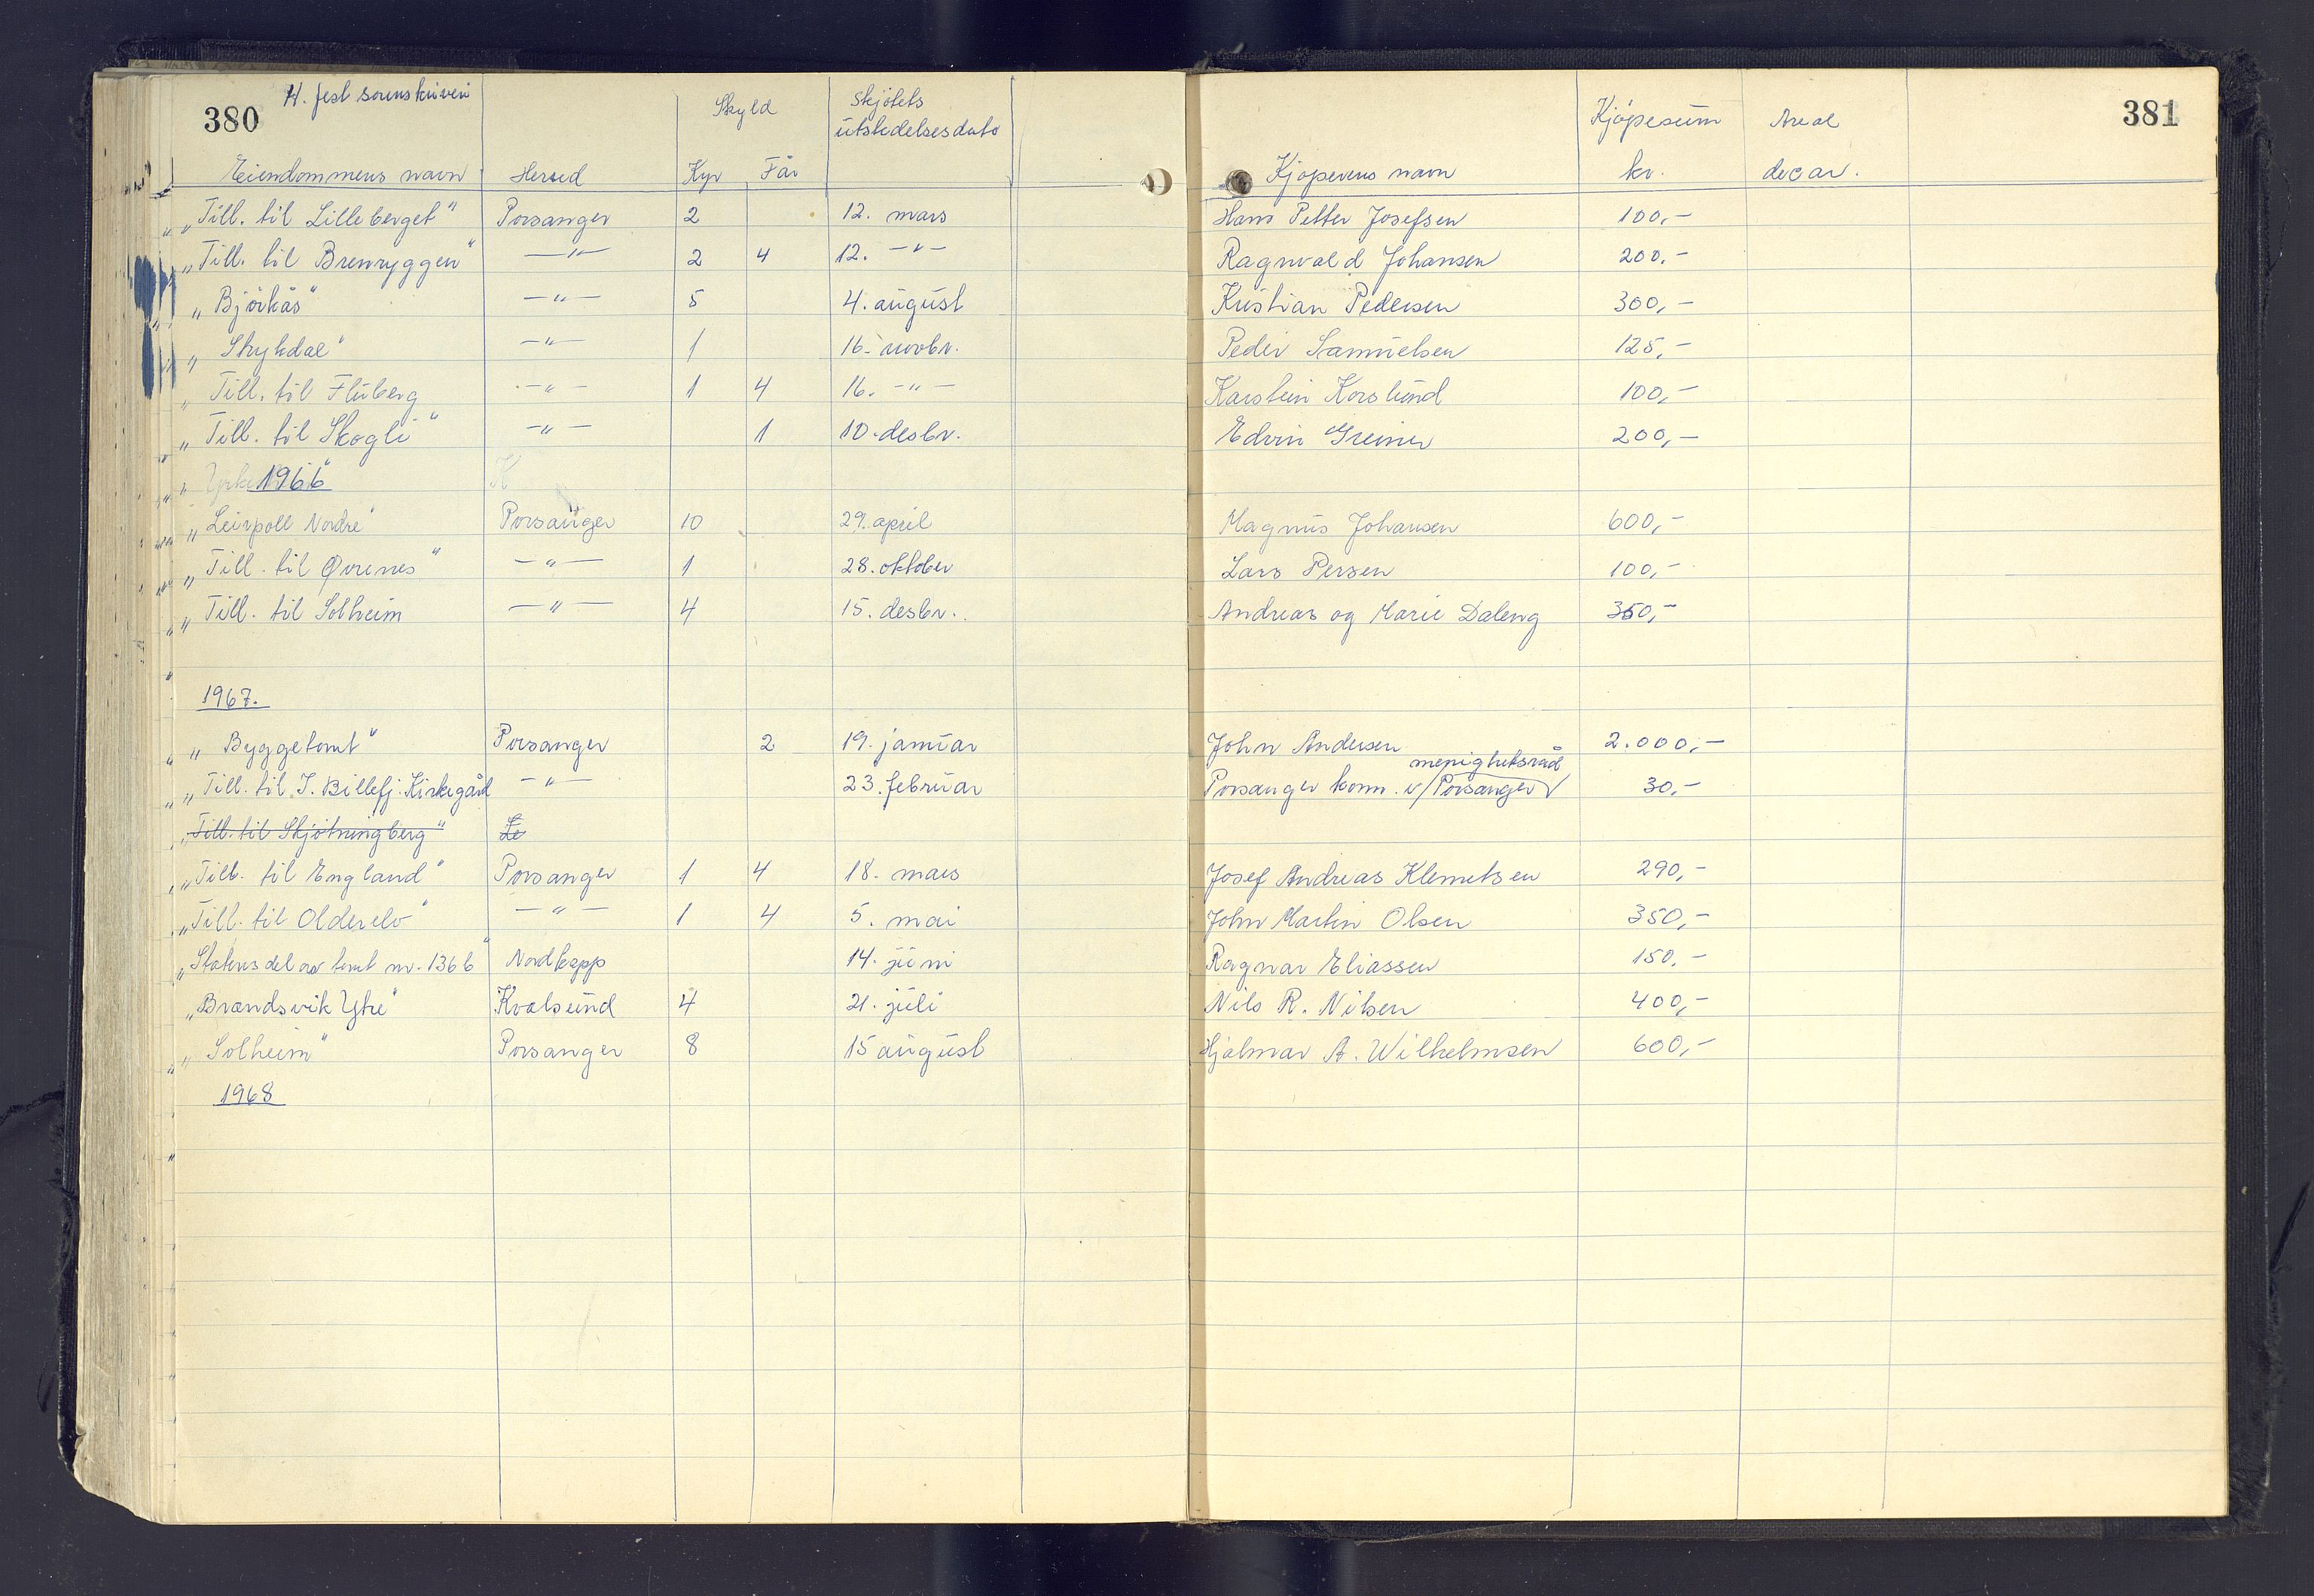 380 H. fest sorenskriveri Skyld Skjøtets Kjøpesum Areal 381
utstedelsesdato
Eiendommens navn Herred Kyr Får Kjøperens navn kr. decar.
"Till. til Lilleberget" Porsanger 2 12. mars Hans Petter Josefsen 100,-
"Till. til Brenryggen" —"— 2 4 12. —"— Ragnvald Johansen 200,-
"Björkås" —"— 5 4. august Kristian Pedersen 300,-
"Stykdal" —"— 1 16. novbr. Peder Samuelsen 125,-
"Till. til Fluberg —"— 1 4 16. —"— Karstein Korslund 100,-
"Till. til Skogli" —"— 1 10. desbr. Edvin Greiner 200,-
1966
"Leirpoll Nordre" Porsanger 10 29. april Magnus Johansen 600,-
"Till. til Øvrenes" —"— 1 28. oktober Lars Persen 100,-
"Till. til Solheim —"— 4 15. desbr. Andreas og Marie Daleng 350,-
1967.
"Byggetomt" Porsanger 2 19. januar John Andersen 2.000,-
menighetsråd
"Till. til I. Billefj. Kirkegård —"— 23. februar Porsanger kom. v/Porsanger 30,-
"Till. til Skjøtningberg" Le
"Till. til England" Porsanger 1 4 18. mars Josef Andreas Klemetsen 290,-
"Till. til Olderelv" —"— 1 4 5. mai John Martin Olsen 350,-
"Statens del av tomt nr. 136 b" Nordkapp 14. juni Ragnar Eliassen 150,-
"Brandsvik Ytre" Kvalsund 4 21. juli Nils R. Nilsen 400,-
"Solheim" Porsanger 8 15 august Hjalmar A. Wilhelmsen 600,-
1968